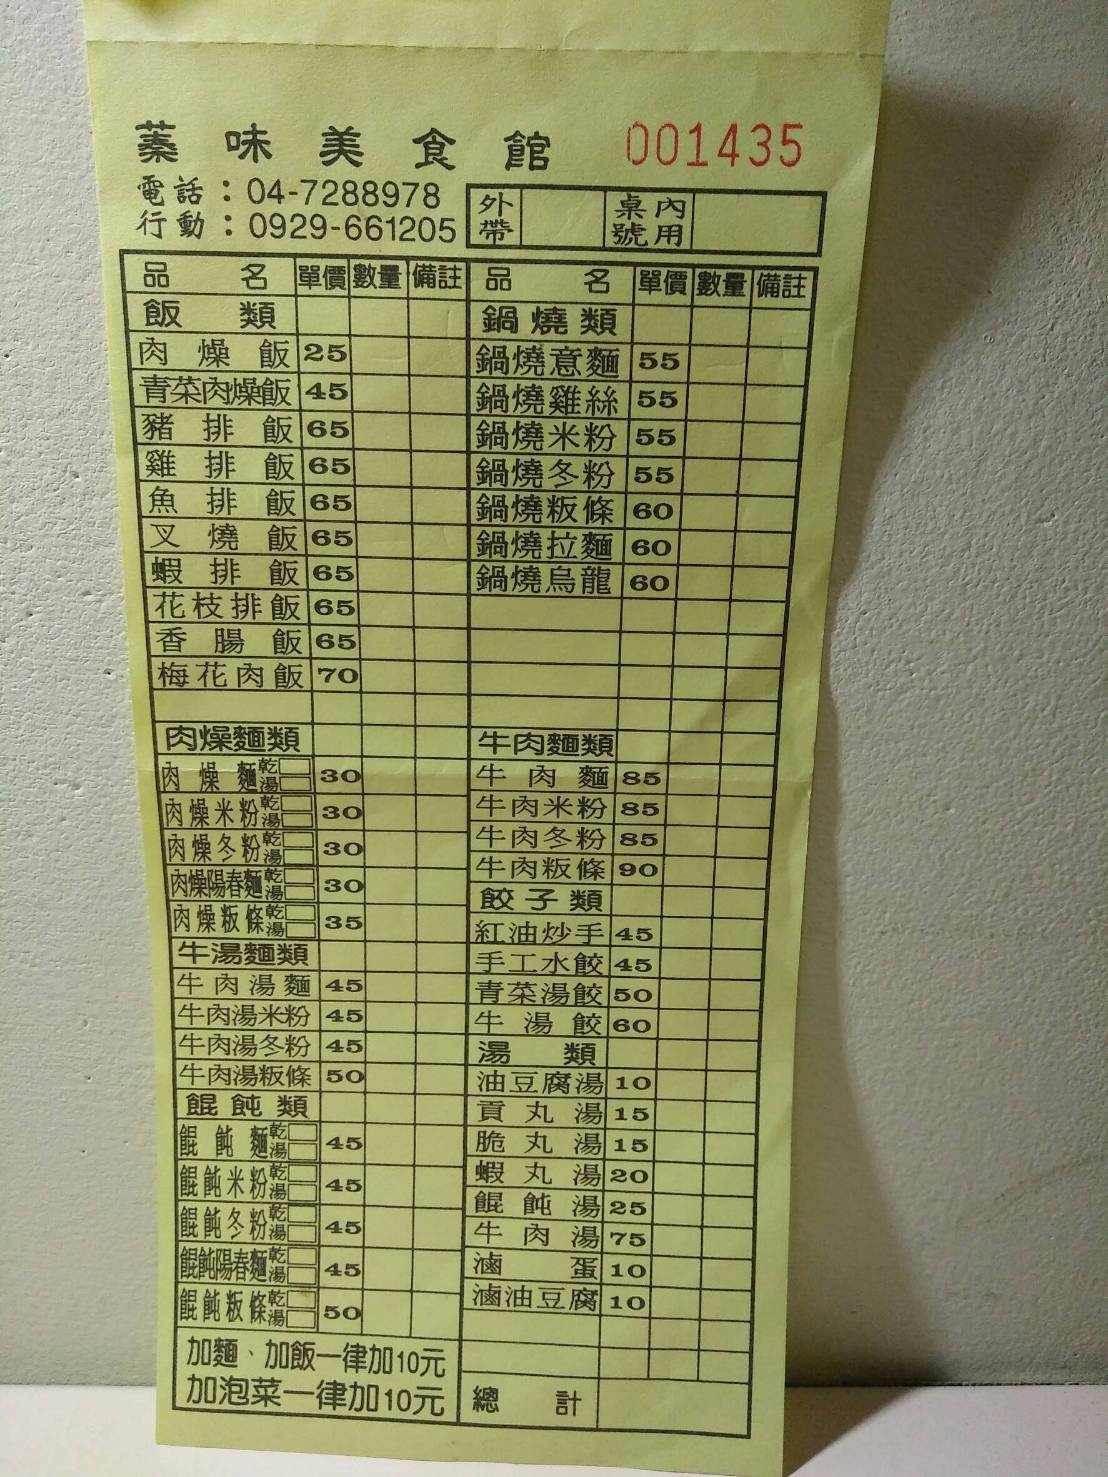 蓁味美食館 001435
電話：04-7288978
行動：0929-661205
外帶 內用桌號
品名 單價 數量 備註
飯類
肉燥飯 25
青菜肉燥飯 45
豬排飯 65
雞排飯 65
魚排飯 65
叉燒飯 65
蝦排飯 65
花枝排飯 65
香腸飯 65
梅花肉飯 70
肉燥麵類
肉燥麵 乾 湯 30
肉燥米粉 乾 湯 30
肉燥冬粉 乾 湯 30
肉燥陽春麵 乾 湯 30
肉燥粄條 乾 湯 35
牛湯麵類
牛肉湯麵 45
牛肉湯米粉 45
牛肉湯冬粉 45
牛肉湯粄條 50
餛飩類
餛飩麵 乾 湯 45
餛飩米粉 乾 湯 45
餛飩冬粉 乾 湯 45
餛飩陽春麵 乾 湯 45
餛飩粄條 乾 湯 50
加麵、加飯一律加10元
加泡菜一律加10元
品名 單價 數量 備註
鍋燒類
鍋燒意麵 55
鍋燒雞絲 55
鍋燒米粉 55
鍋燒冬粉 55
鍋燒粄條 60
鍋燒拉麵 60
鍋燒烏龍 60
牛肉麵類
牛肉麵 85
牛肉米粉 85
牛肉冬粉 85
牛肉粄條 90
餃子類
紅油炒手 45
手工水餃 45
青菜湯餃 50
牛湯餃 60
湯類
油豆腐湯 10
貢丸湯 15
脆丸湯 15
蝦丸湯 20
餛飩湯 25
牛肉湯 75
滷蛋 10
滷油豆腐 10
總計